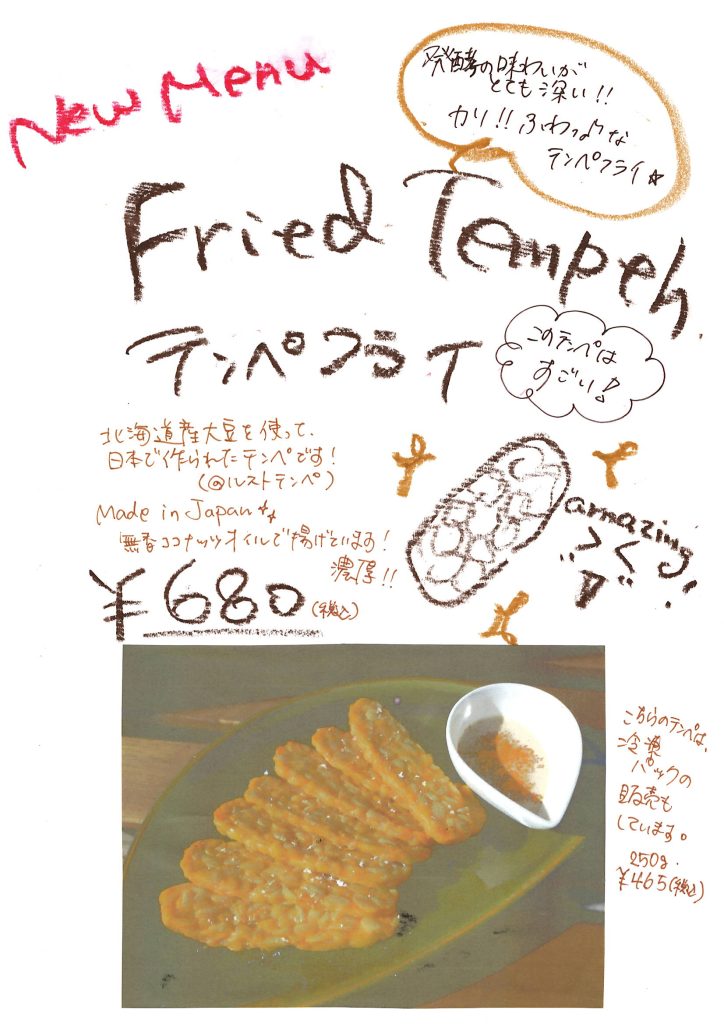 New Menu
発酵の味わいが
とても深い!!
カリ!! ふわっ♪な
テンペフライ☆
Fried Tempeh
テンペフライ
このテンペは
すごい!
北海道産大豆を使って、
日本で作られたテンペです!
(@ルストテンペ)
Made in Japan
無香ココナッツオイルで揚げています!
濃厚!!
¥680(税込)
amazing!
こちらのテンペは、
冷凍
パックの
販売も
しています。
250g.
¥465(税込)